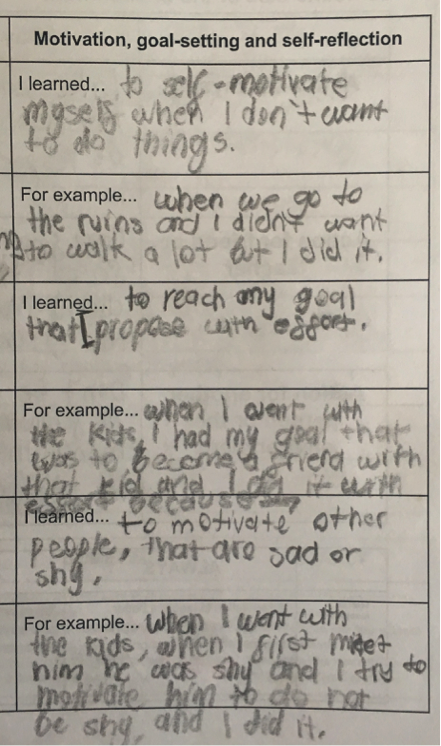 Motivation, goal-setting and self-reflection
I learned... to self-motivate
myself when I don't want
to do things.
For example... when we go to
the ruins and I didn't want
to walk a lot but I did it.
I learned... to reach my goal
that I propose with effort.
For example... when I went with
the kids, I had my goal that
was to become a friend with
that kid and I did it with
effort because
I learned... to motivate other
people, that are sad or
shy.
For example... when I went with
the kids, when I first meet
him he was shy and I try to
motivate him to do not
be shy, and I did it.